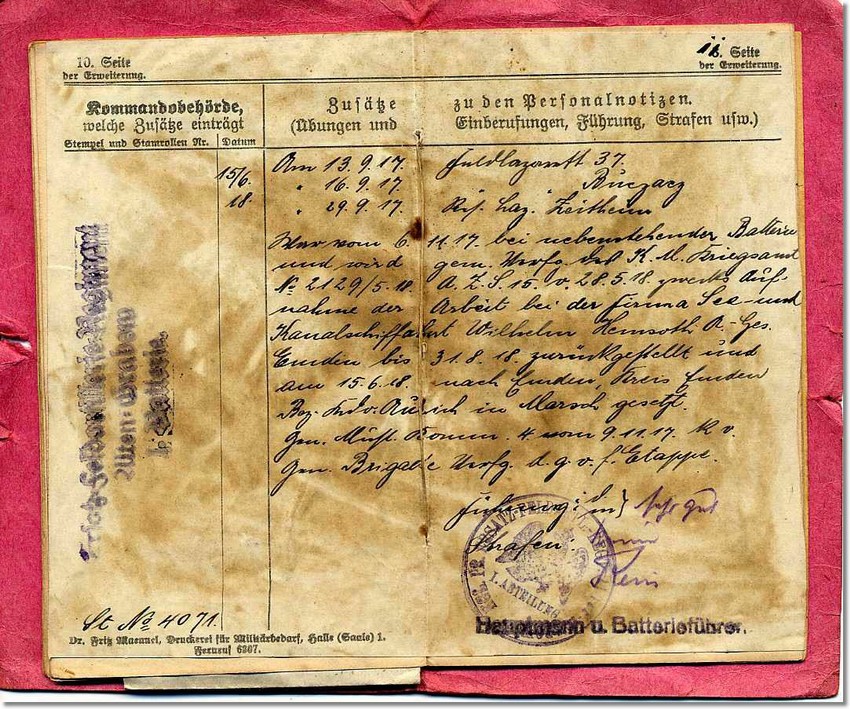 10. Seite
der Erweiterung.
11. Seite
der Erweiterung.
Kommandobehörde,
welche Zusätze einträgt
Stempel und Stamrollen Nr. Datum
Zusätze zu den Personalnotizen.
(Übungen und Einberufungen, Führung, Strafen usw.)
15/6.
18.
Am 13.9.17. Feldlazarett 37.
" 16.9.17. " Buczacz
" 29.9.17. Res. Laz. Zeithain
War vom 6. 11.17. bei nebenstehender Batterie
und wird gem. Verfg. des K.M. Kriegsamt
No 2129/5.18. A.Z.S. 15. v. 28.5.18. zwecks Auf-
nahme der Arbeit bei der Firma See- und
Kanalschiffahrt Wilhelm Hemsoth A.-Ges.
Emden bis 31.8.18. zurückgestellt und
am 15.6.18. nach Emden, Kreis Emden
Bez. Kdo. Aurich in Marsch gesetzt.
Gem. Komm. 4 vom 9.11.17. k.v.
Gem. Brigade Verfg. d. g.v.f. Etappe.
Führung: sehr gut
Strafen: keine
Ersatz-Feldartillerie-Regiment
Alten-Grabow
1. Batterie.
I. ABTEILUNG
Hauptmann u. Batterieführer.
St No 4071.
Dr. Fritz Maennel, Druckerei für Militärbedarf, Halle (Saale) 1.
Fernruf 6207.